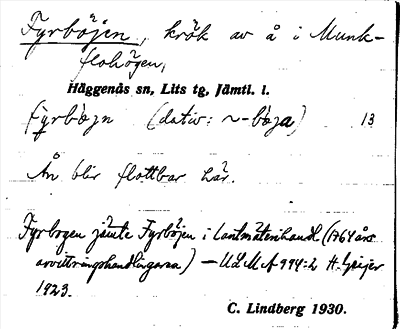 Fyrböjen, krök av å i Munk-
flohögen,
Häggenås sn, Lits tg, Jämtl. l.
fyrbòjn (dativ: ~-bòja) 13
Ån blir flottbar här.
Fyrbogen jämte Fyrböjen i Lantmäterihandl (1764 års
avvittringshandlingarna) — ULMA 994:2 H. Geijer
1923.
C. Lindberg 1930.